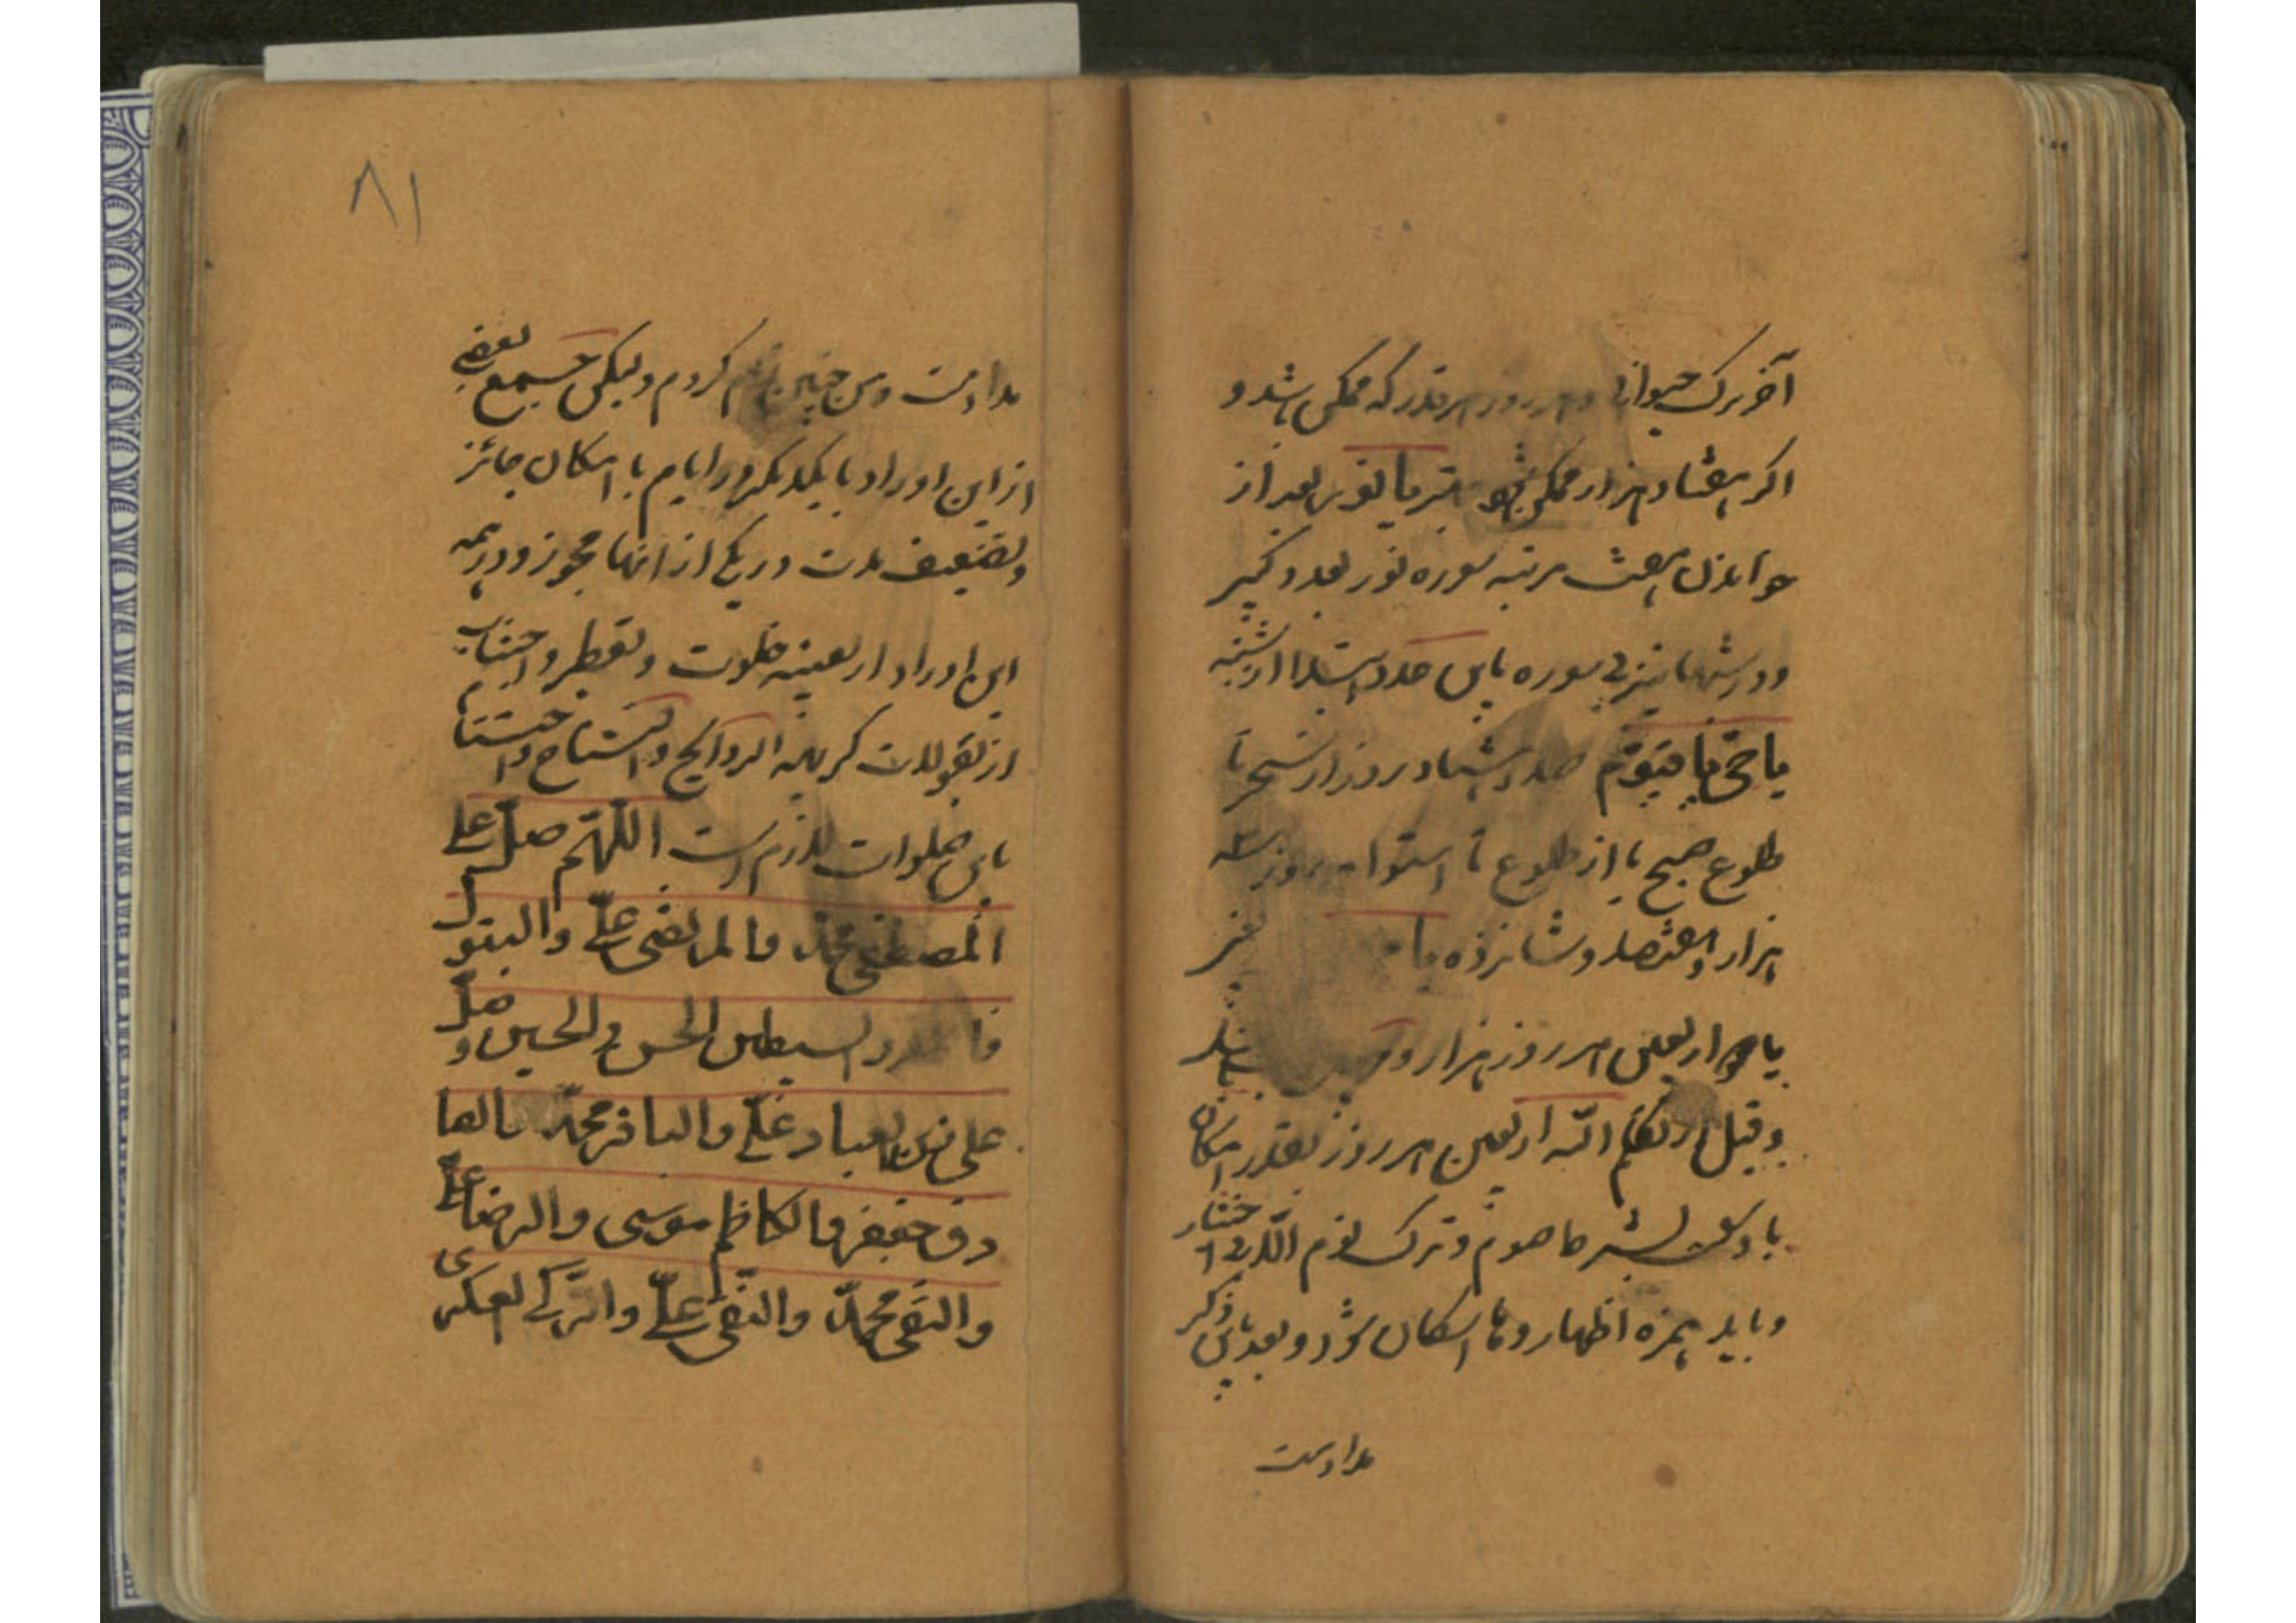 آخر ترک حیوانی و هر روز هر قدر که ممکن باشد و
اکر هفتاد هزار ممکن شود بهتر یا نور بعد از
خواندن هفت مرتبه سوره نور بعد دکبیر
ودر شبها نیز بی سوره باین عدد ابتدا از شنبه
یا حی یا قیوم صد و هشتاد روز از سحر تا
طلوع صبح یا از طلوع تا استوا هر روز سه
هزار و هفتصد و شانزده یا
یا هو اربعین هر روز هزار و باشد
و قبل از تکلم الله اربعین هر روز بقدر امکان
با صوم و ترک نوم الا بی اختیار
و باید همزه اظهار و ها اسکان شود و بعد باین ذکر
مداومت
۸۱
مداومت ومن چنین هم کردم ولیکن جمع بعضی
از این اوراد با یکدیکر در ایام با امکان جائز
وتضعیف مدت در یکی از انها مجوز و در همه
این اوراد اربعینیه خلوت و تعطر و اجتناب
از بقولات کریهه الروایح و افتتاح و اختتام
باین صلوات لازم است اللّهم صلّ علی
المصطفی محمّد والمرتضی علیّ والبتول
فاطمة والسبطین الحسن والحسین وصلّ
علی زین العباد علیّ والباقر محمّد والصا
دق جعفر والکاظم موسی والرضا علیّ
والتقی محمّد والنقی علیّ والزکی العسکری